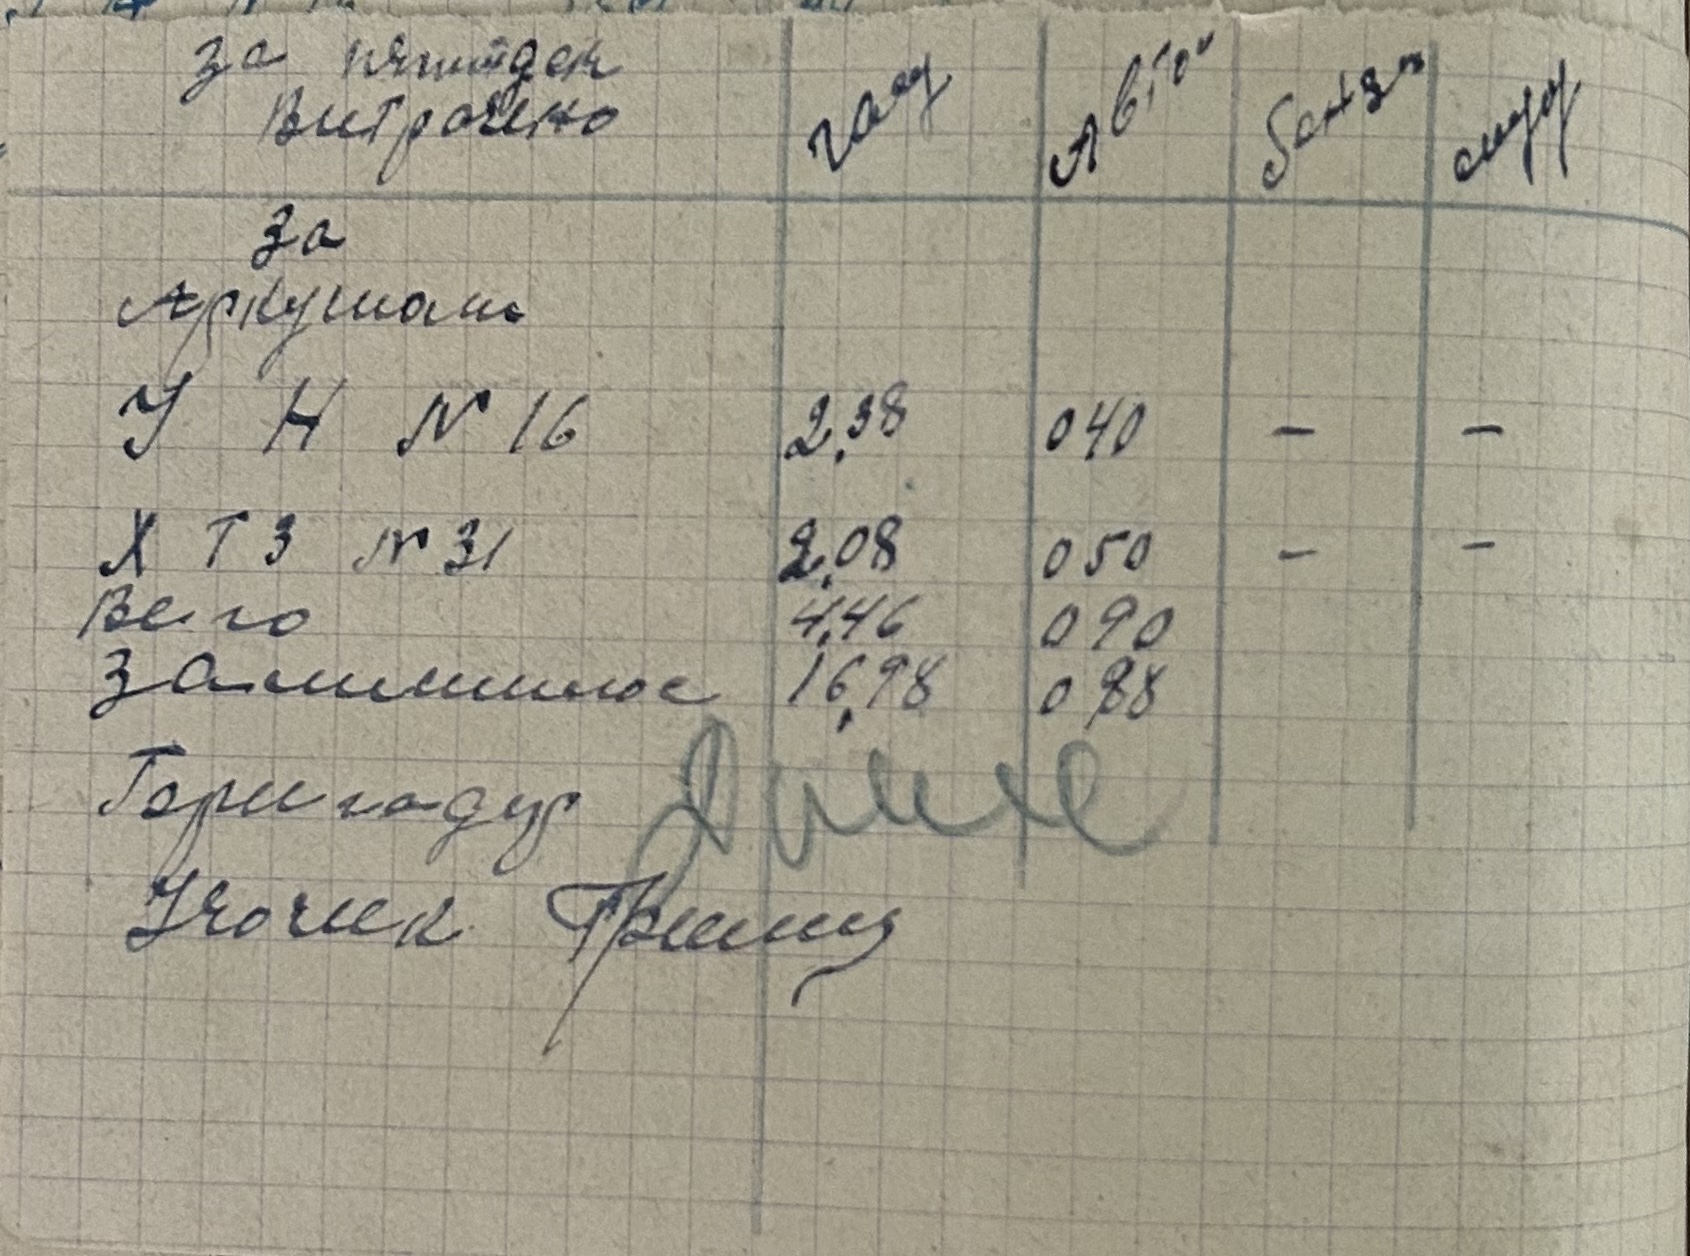 За пятидек
Витрачено гасу Автол бензин
За
Аркушам
У Н № 16 2,38 040 - -
Х Т З № 31 2,08 050 - -
Всего 4,46 090
Залишилос 16,98 088
Бригадир
Учочик